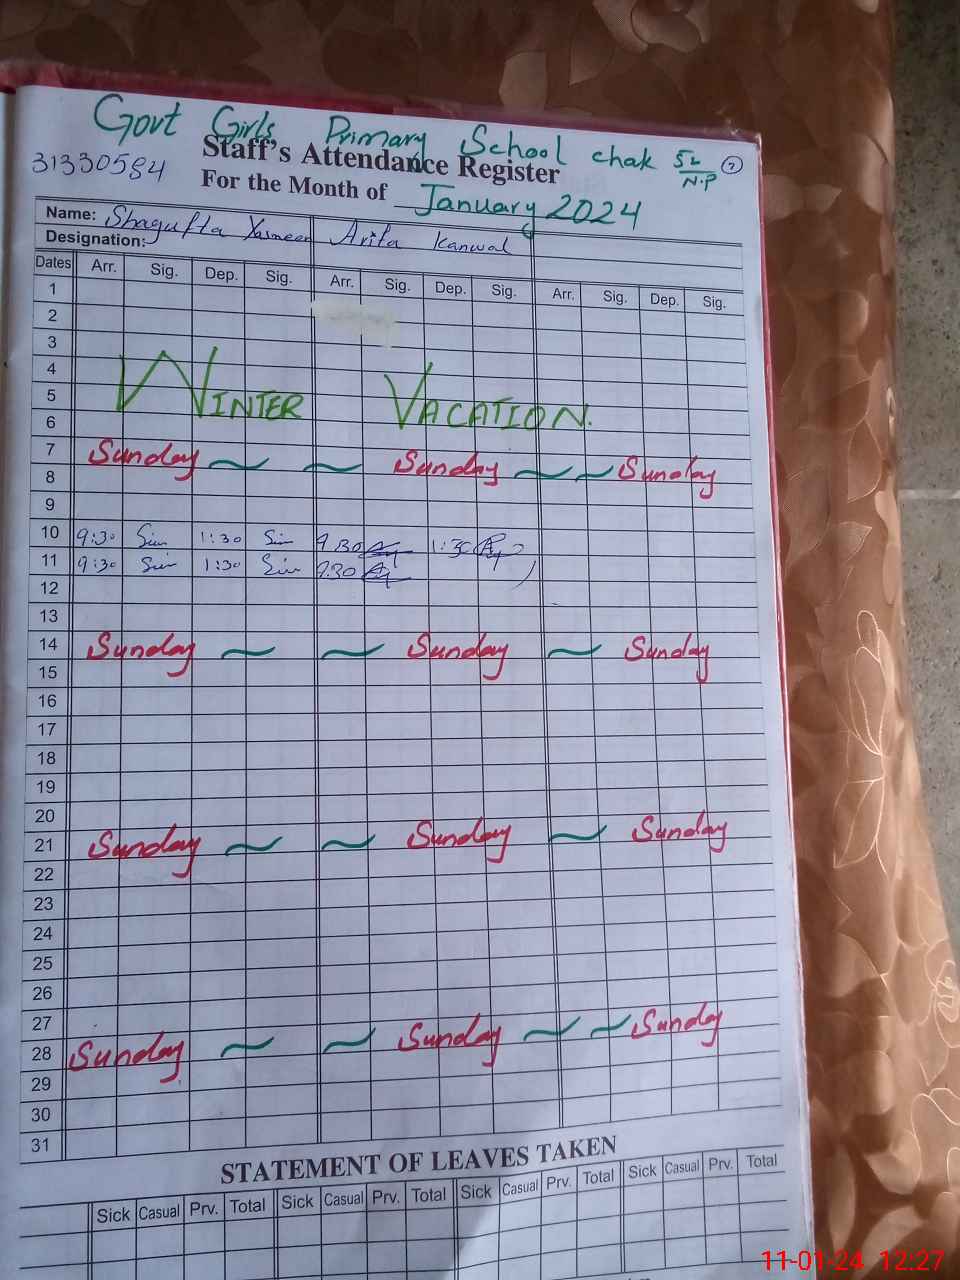 Govt Girls Primary School chak 5L/N.P 7
31330584
Staff's Attendance Register
For the Month of January 2024
Name: Shagufta Yasmeen Arifa Kanwal
Designation:
Dates Arr. Sig. Dep. Sig. Arr. Sig. Dep. Sig. Arr. Sig. Dep. Sig.
1
2
3
4
5
WINTER VACATION.
6
7 Sunday ~ ~ Sunday ~ ~ Sunday
8
9
10 9:30 1:30 9:30 1:30
11 9:30 1:30 9:30
12
13
14 Sunday ~ ~ Sunday ~ Sunday
15
16
17
18
19
20
21 Sunday ~ ~ Sunday ~ Sunday
22
23
24
25
26
27
28 Sunday ~ ~ Sunday ~ ~ Sunday
29
30
31
STATEMENT OF LEAVES TAKEN
Sick Casual Prv. Total Sick Casual Prv. Total Sick Casual Prv. Total Sick Casual Prv. Total
11-01-24 12:27